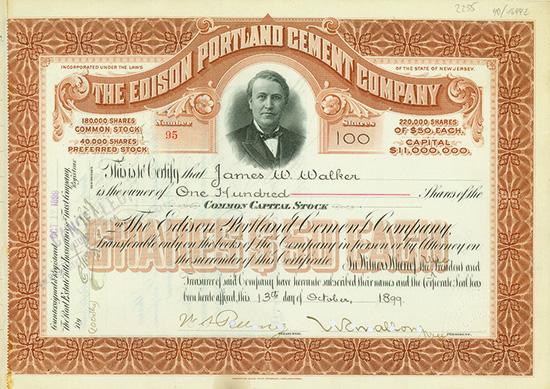 2255
INCORPORATED UNDER THE LAWS
OF THE STATE OF NEW JERSEY.
THE EDISON PORTLAND CEMENT COMPANY
180,000 SHARES
COMMON STOCK
40,000 SHARES
PREFERRED STOCK
Number
95
Shares
100
220,000 SHARES
OF $50. EACH.
CAPITAL
$11,000,000.
This is to Certify that James W. Walker
is the owner of One Hundred Shares of the
COMMON CAPITAL STOCK
of The Edison Portland Cement Company,
Transferable only on the books of the Company in person or by Attorney on
the surrender of this Certificate. In Witness Whereof, the President and
Treasurer of said Company have hereunto subscribed their names and the Corporate Seal has
been hereto affixed, this 13th day of October, 1899
SHARES $50 EACH
TREASURER.
Vice PRESIDENT.
Countersigned & Registered
The Real Estate Title Insurance and Trust Company,
Registrar
By